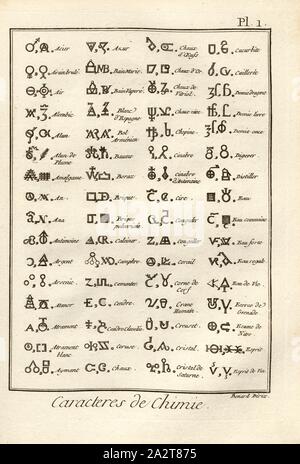 Pl. 1.
Acier Azur Chaux d'Œufs Cucurbite
Airain brulé Bain Marie Chaux d'Or Cuillerée
Air Bain Chaux de Vitriol Demie dragme
Alembic Blanc d'Espagne Chaux vive Demie livre
Alun Bol Armenien Chopine Demie once
Alun de Plume Baume Cinabre Digerer
Amalgame Borax Cinabre d'Antimoine Distiller
An Brique Cire Eau
Ana Brique pulverisée Coaguler Eau commune
Antimoine Calciner Coagulle Eau forte
Argent Camphre Corail Eau regale
Arsenic Cementer Corne de Cerf Eau de Vie
Atanor Cendre Crane Humain Ecorce de Grenade
Atrament Creuset Ecume de Nitre
Atrament blanc Ceruse Cristal Esprit
Aymant Chaux Cristal de Saturne Esprit de Vin
Benard Direx.
Caracteres de Chimie.
alamy
Image ID: 2A2T875
www.alamy.com